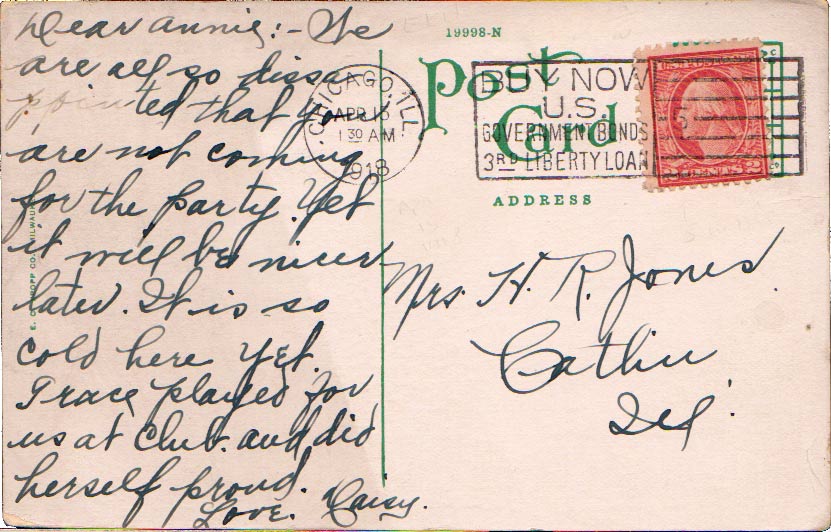 Dear Annie:- We
are all so dissa
pointed that you
are not coming
for the party. Yet
it will be nicer
later. It is so
cold here yet.
Grace played for
us at Club. and did
herself proud.
Love. Daisy.
E. C. KROPP CO. MILWAUKEE
19998-N
Post
Card
CHICAGO, ILL.
APR 16
1 30 AM
1918
BUY NOW
U.S.
GOVERNMENT BONDS
3RD LIBERTY LOAN
ADDRESS
Mrs. H. R. Jones.
Catlin
Ill.